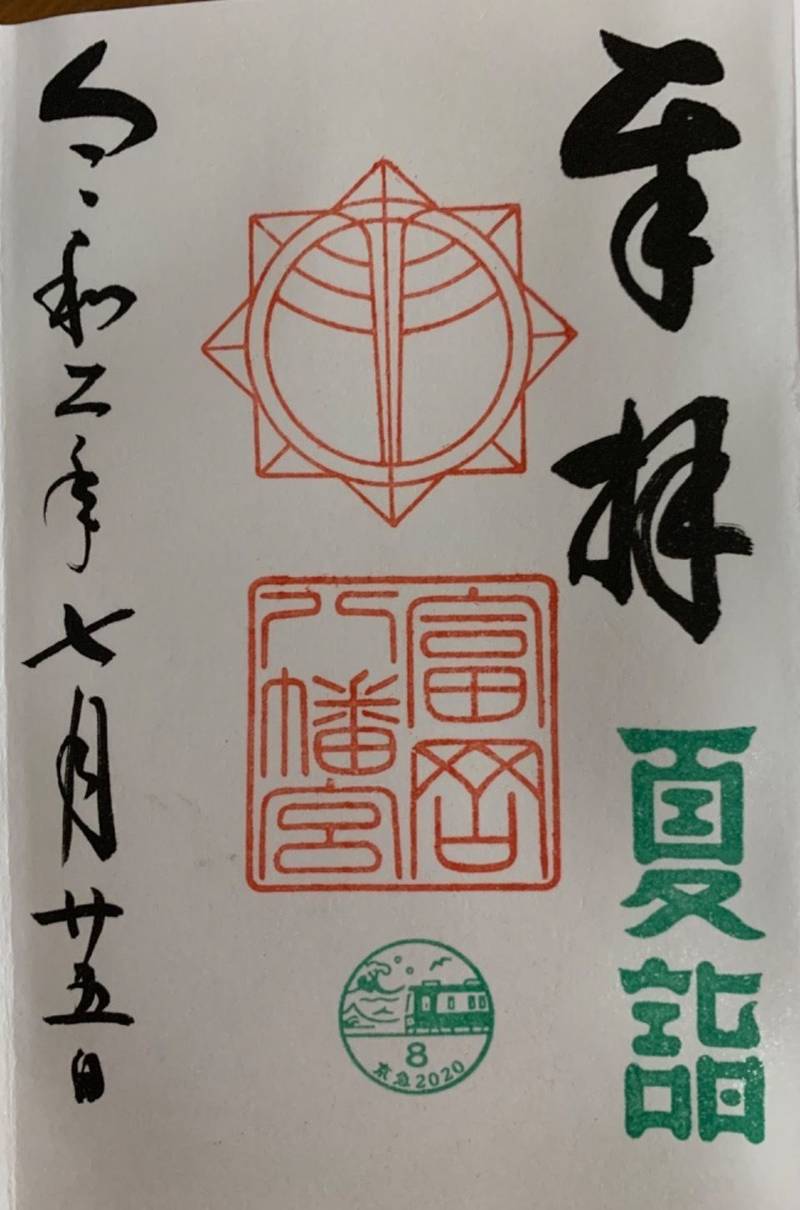 奉拝
夏詣
富岡
八幡宮
8
京急2020
令和二年七月廿五日